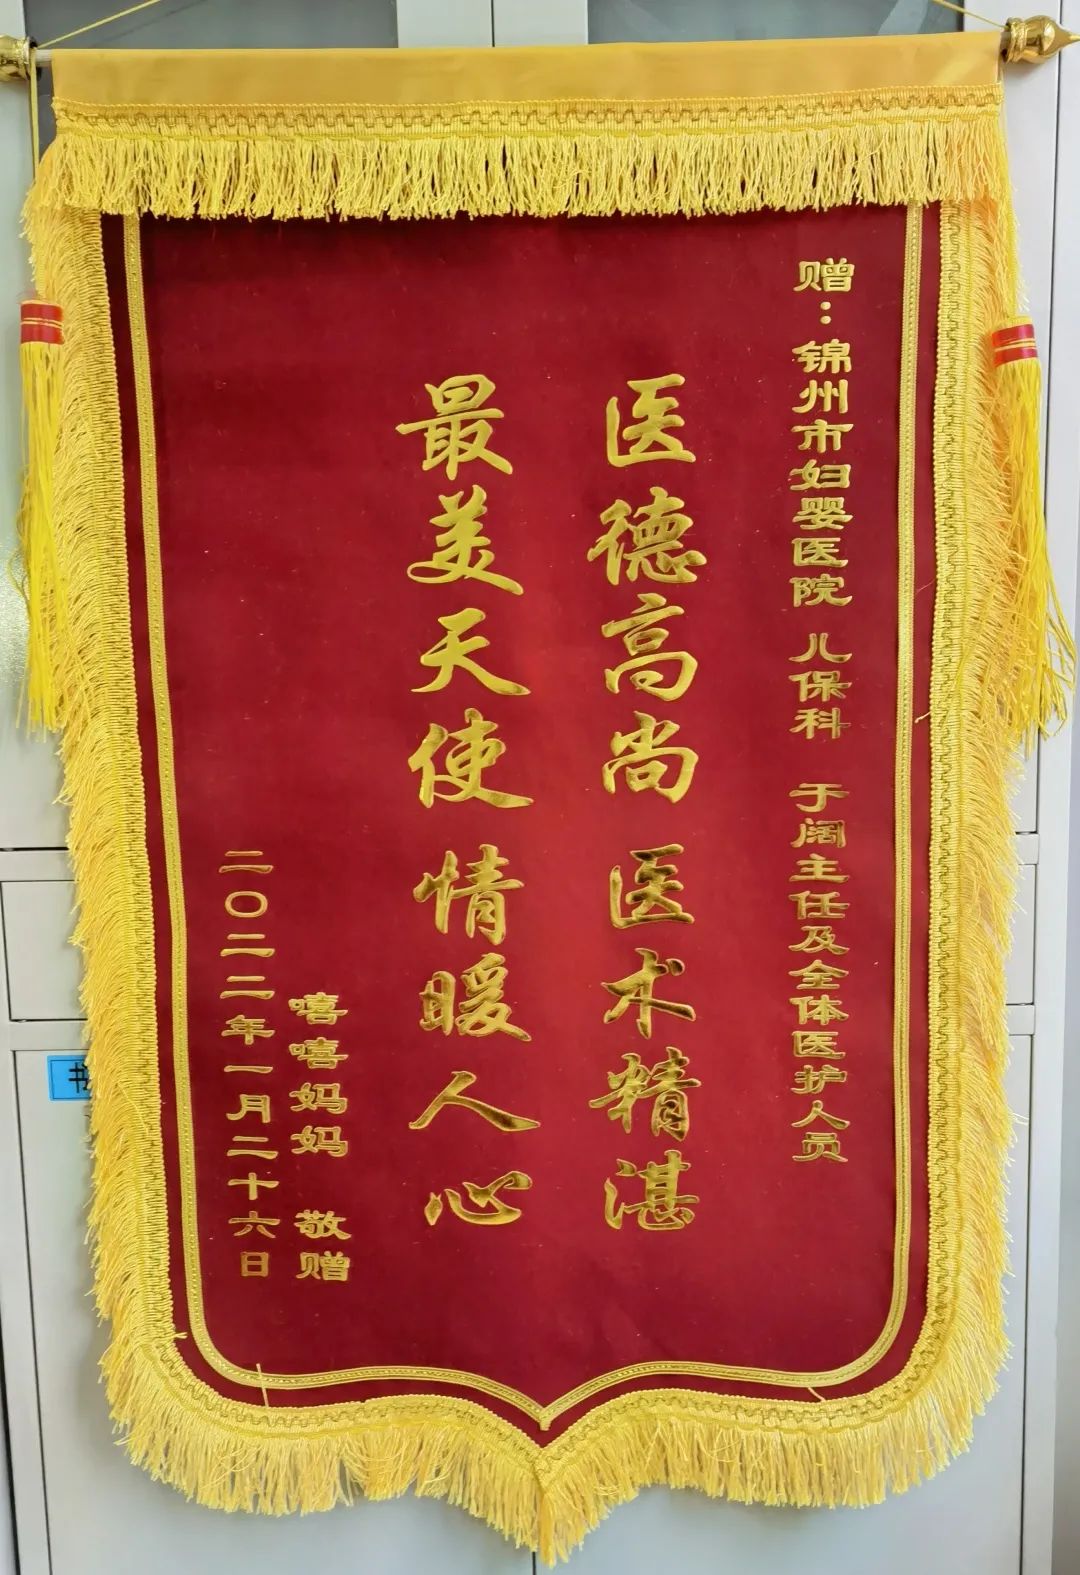 赠：锦州市妇婴医院 儿保科 于阔主任及全体医护人员
医德高尚 医术精湛
最美天使 情暖人心
嘻嘻妈妈 敬赠
二〇二二年一月二十六日